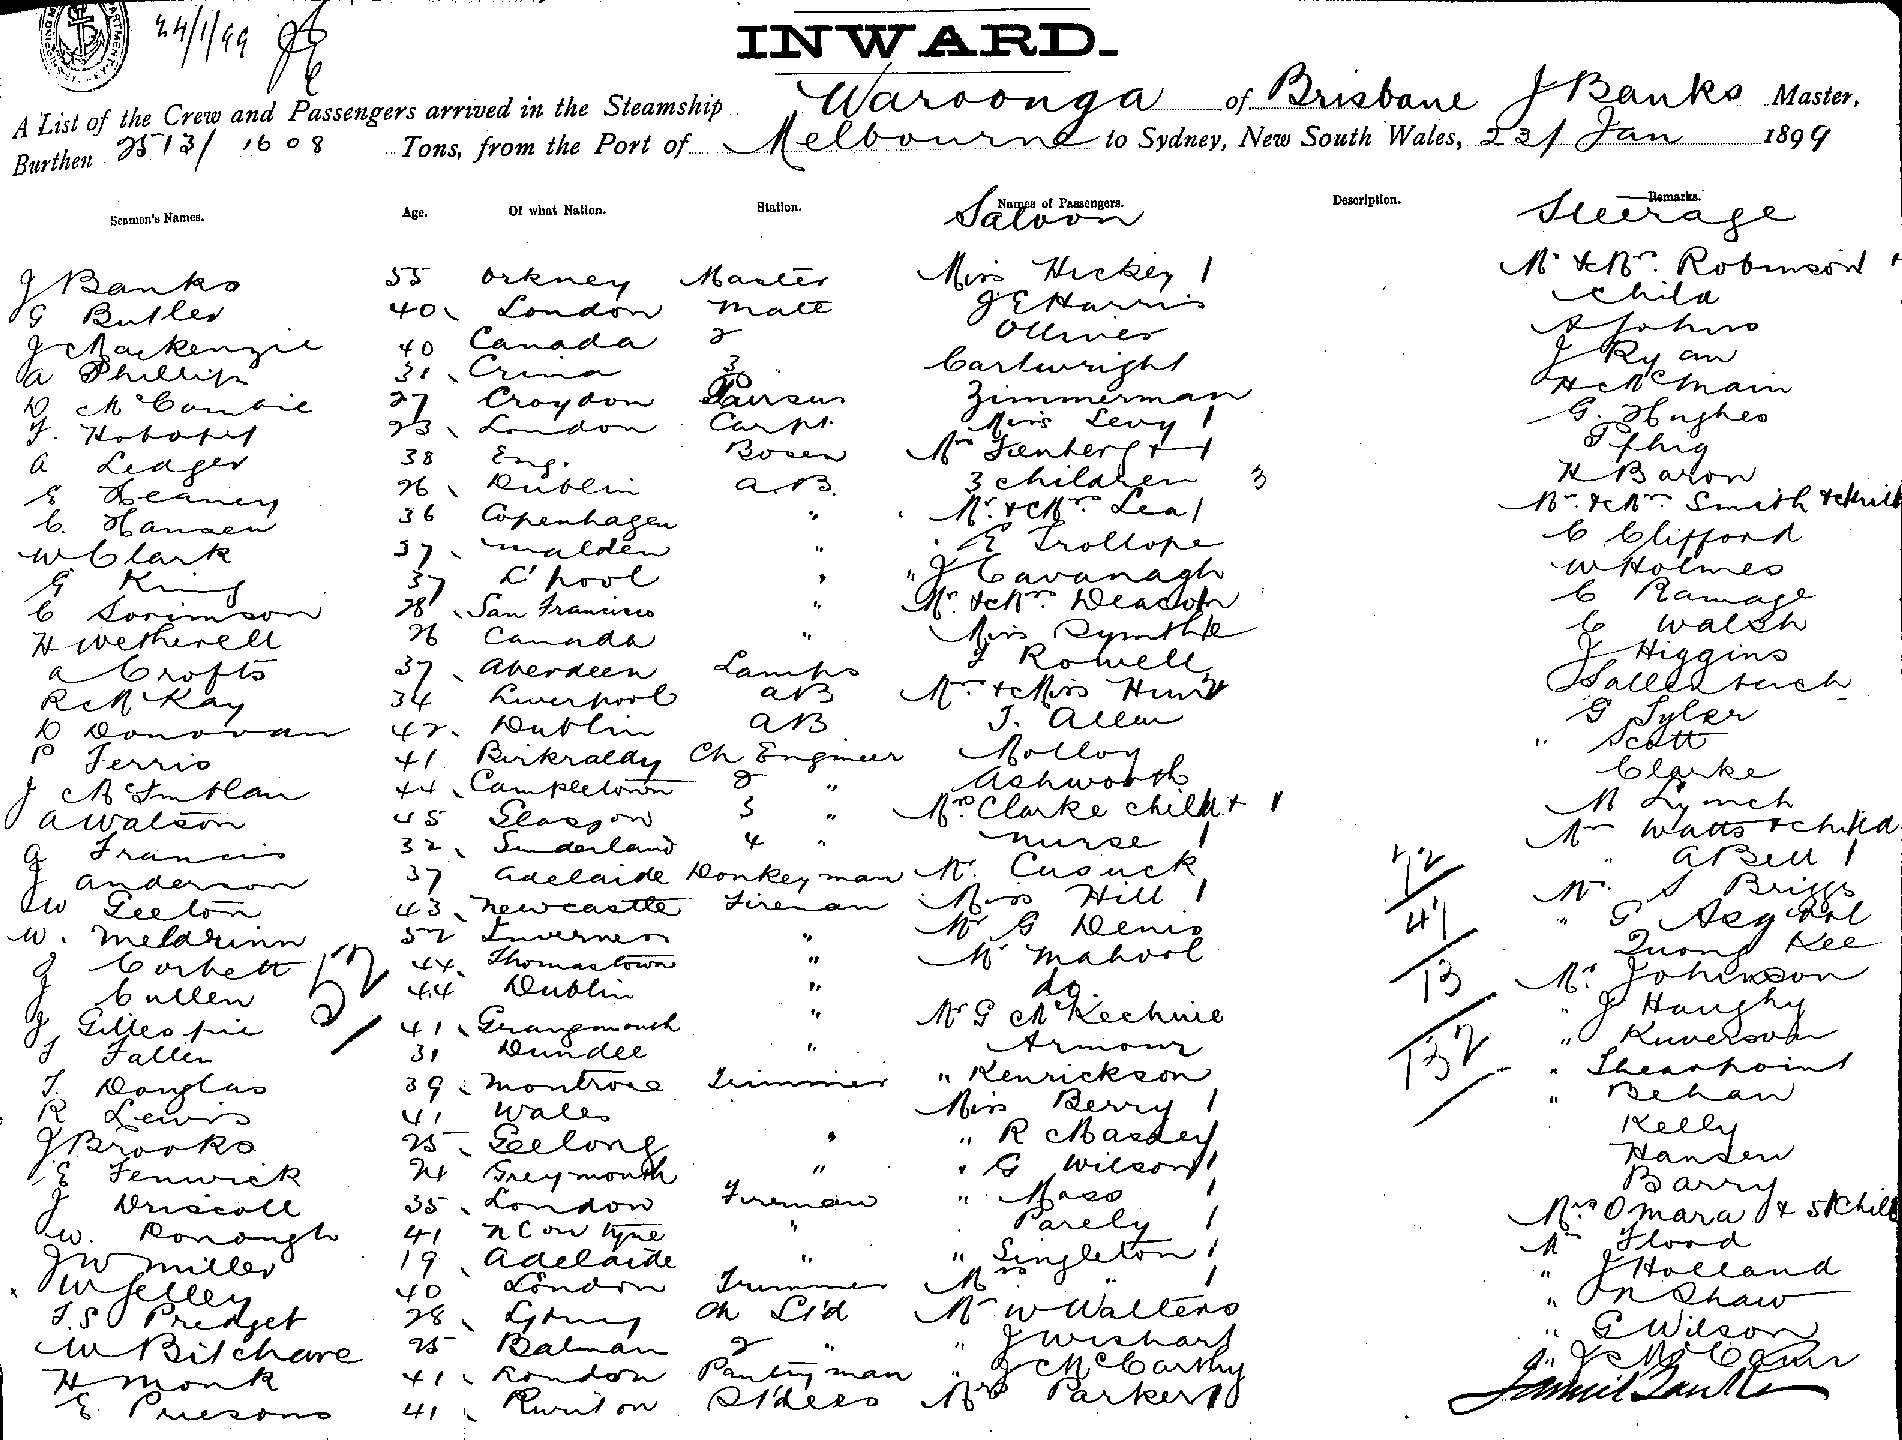 24/1/99
INWARD.
A List of the Crew and Passengers arrived in the Steamship Waroonga of Brisbane J Banks Master,
Burthen 2513/1608 Tons, from the Port of Melbourne to Sydney, New South Wales, 23/ Jan 1899
Seamen's Names. Age. Of what Nation. Station. Names of Passengers. Description. Remarks.
Saloon Steerage
J Banks 55 Orkney Master Miss Hickey 1 Mr & Mrs. Robinson
G Butler 40 London Mate J E Harris Child
J Mackenzie 40 Canada 2 Olliver A Johns
A Phillips 31 3 Cartwright J Ryan
D McCombie 27 Croydon Zimmerman H McMain
23 London Carpt. Miss Levy 1 G. Hughes
A Ledger 38 Eng. Bosen Mrs Fienberg + 1 Pflug
E Heaney 26 Dublin A.B. 3 children 3 H Baron
C. Hansen 36 Copenhagen " Mr. & Mrs. Lea 1 Mr. & Mrs. Smith & child
W Clark 37 Malden " E Trollope C Clifford
G King 37 L'pool " " J Cavanagh W Holmes
C Sorimson 28 San Francisco " Mr. & Mrs. Deacon C Ramage
H Wetherell 26 Canada " Miss C Walsh
A Crofts 37 Aberdeen Lamps F Rowell J Higgins
R McKay 34 Liverpool AB Mr & Miss Hunt
D Donovan 42 Dublin AB T. Allen G Tyler
P Ferris 41 Ch Engineer Molloy " Scott
J 44 Campletown 2 " Ashworth Clarke
A Watson 45 Glasgow 3 " Mrs Clarke child + 1 M Lynch
G Francis 32 Sunderland 4 " nurse 1 Mrs Watts & child
J Anderson 37 Adelaide Donkeyman Mr. Cusick " A Bell 1
W Geeton 43 Newcastle Fireman Miss Hill 1 Mr. S Briggs
W. Meldrinn 52 Inverness " Mr G Denis " G
J Corbett 44 Thomastown " Mr Mahool Quong Kee
J Cullen 44 Dublin " do. Mr. Johnson
J Gillespie 41 Grangemouth " Mr G McKechnie " J Haughy
J Fallen 31 Dundee " Armour "
T. Douglas 39 Montrose Trimmer " Kenrickson "
R Lewis 41 Wales Miss Berry 1 " Behan
J Brooks 25 Geelong " " R Massey Kelly
E Fenwick 24 Greymouth " " G Wilson 1 Hansen
J Driscoll 35 London Fireman " Moss 1 Barry
W. Donough 41 N C on Tyne " Parely 1 Mrs Omara & 5 Child
J W Miller 19 Adelaide " " Singleton 1 Mr Flood
W Jelley 40 London Trimmer Mrs " 1 " J Holland
T.S Predget 28 Sydney Ch St'd Mr W Walters " N Shaw
W 25 Balman 2 " " J Wishart " G Wilson
H Monk 41 London Pantryman " J McCarthy "
E 41 St'dess Mrs Parker 1
52
72
41
13
132